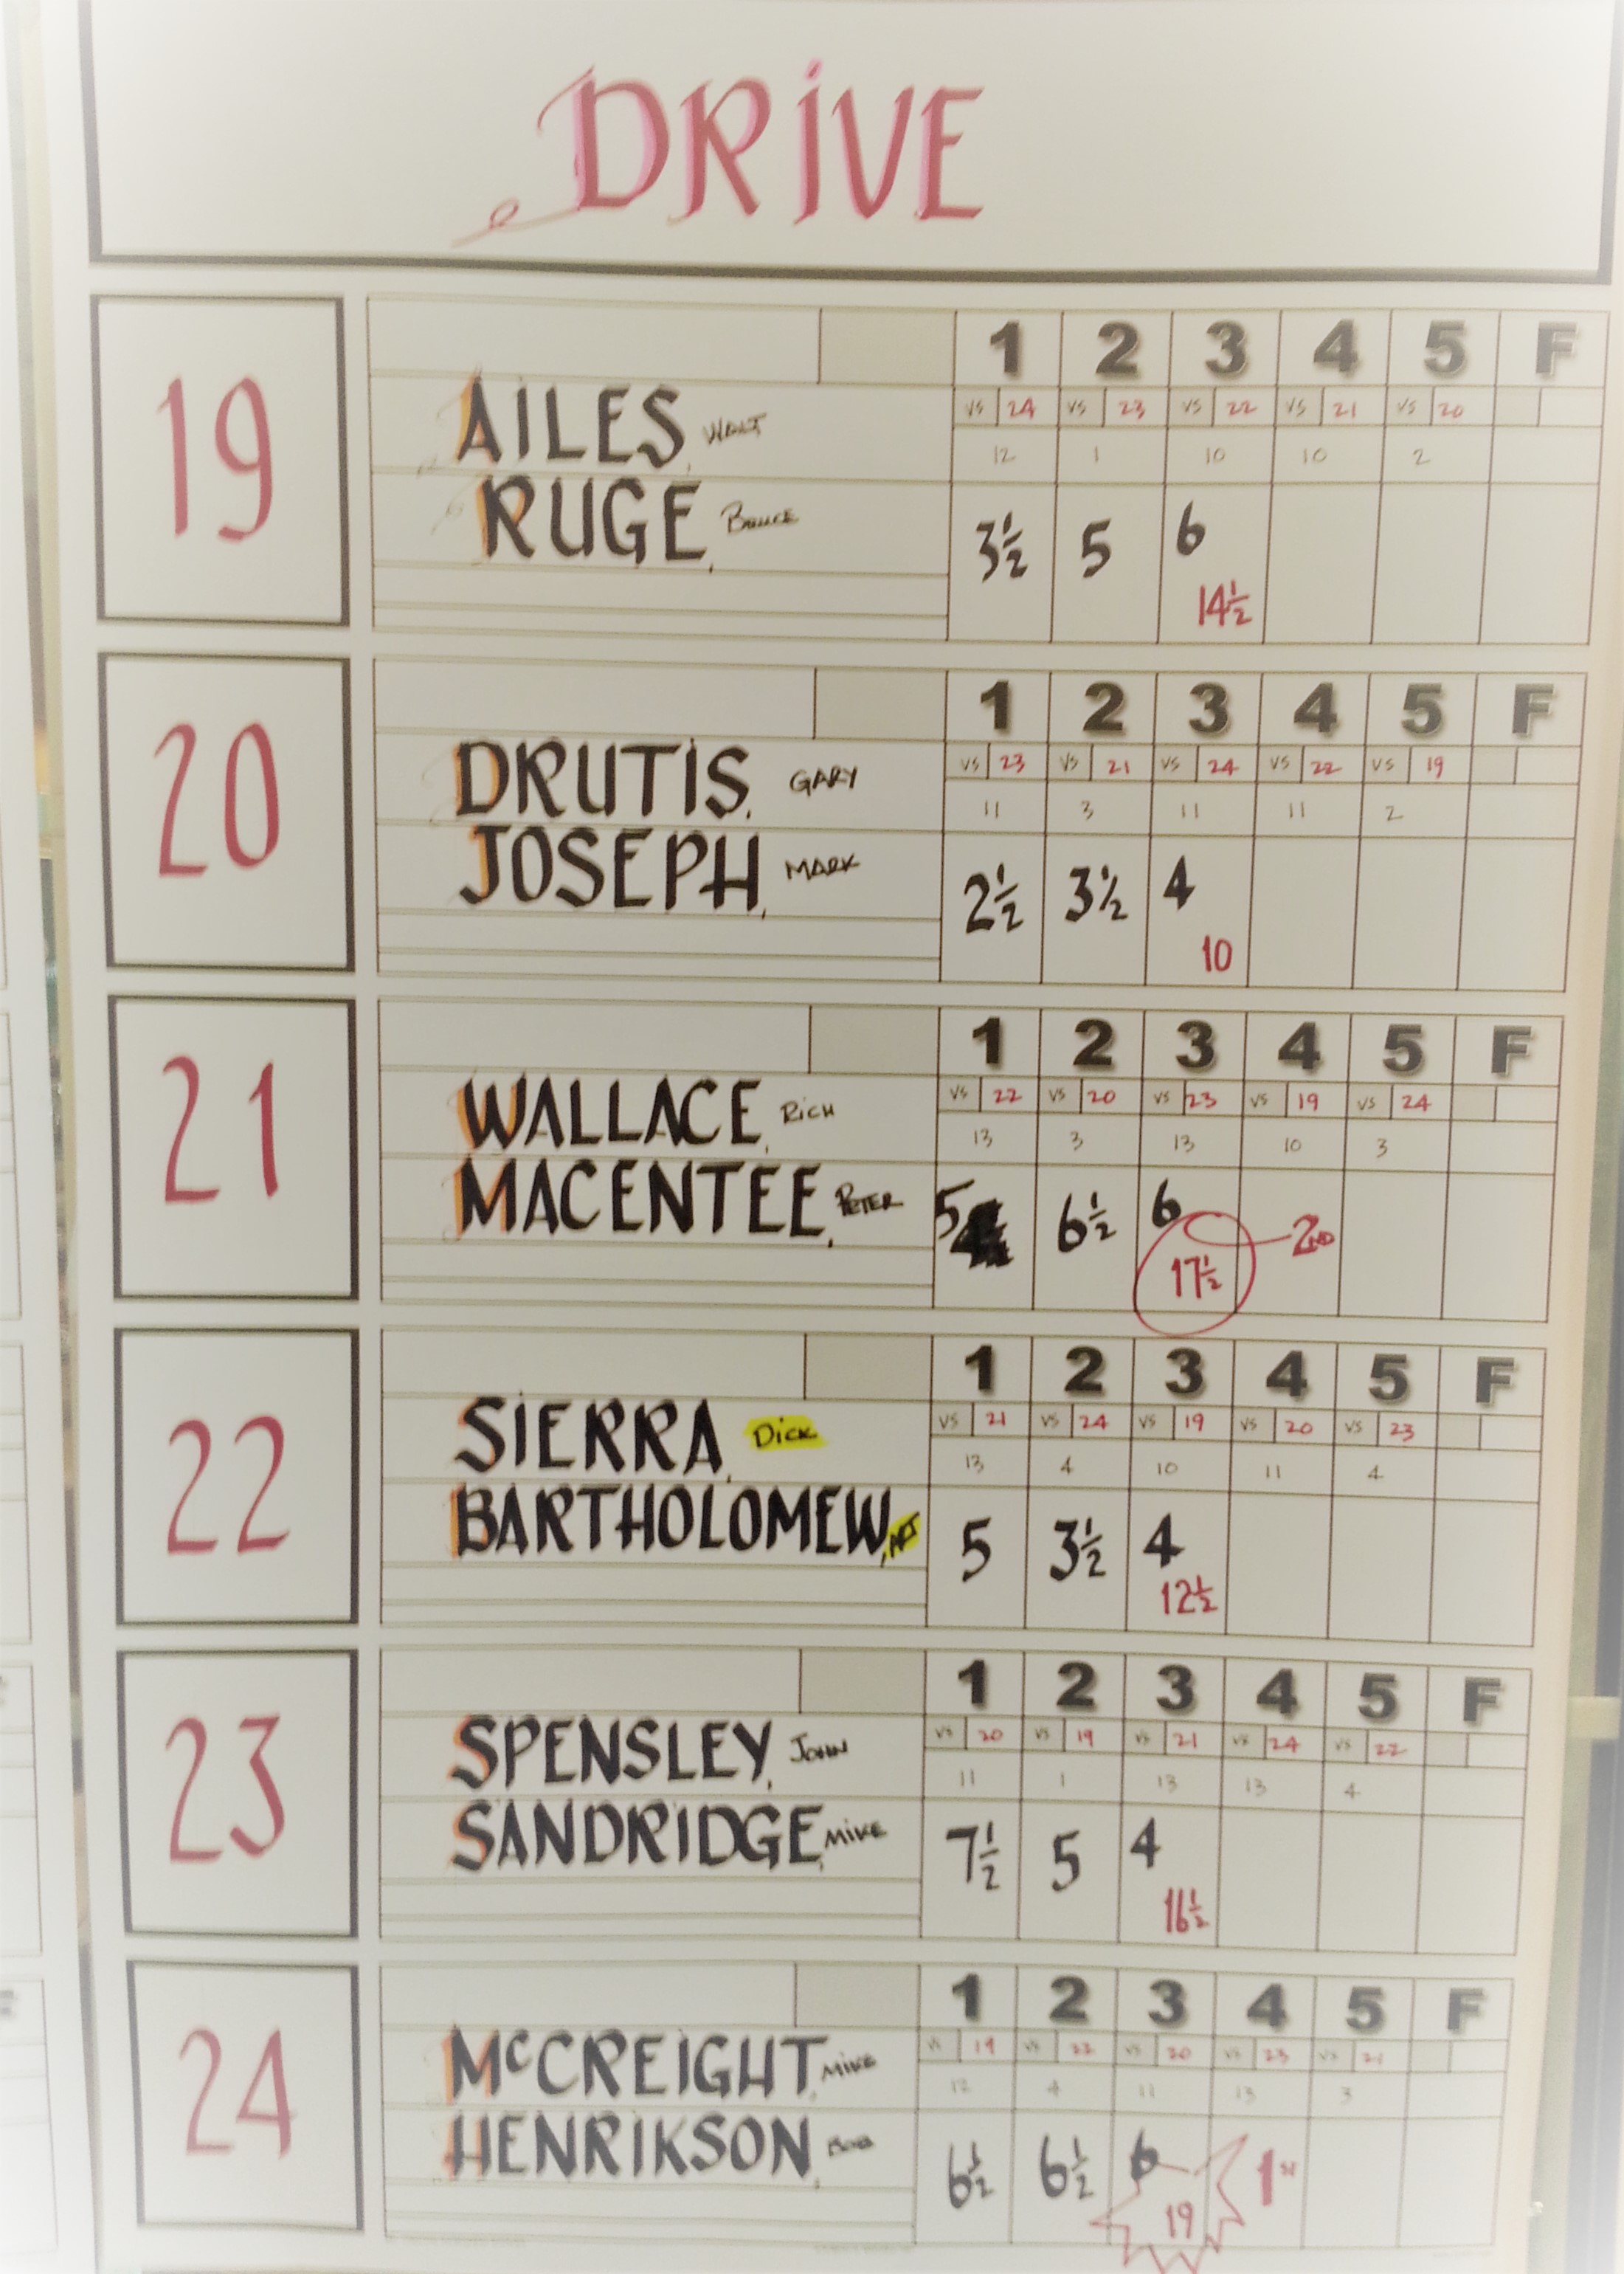 DRIVE
19
1 2 3 4 5 F
AILES, WALT
VS 24 VS 23 VS 22 VS 21 VS 20
12 1 10 10 2
RUGE, BRUCE
3½ 5 6
14½
20
1 2 3 4 5 F
DRUTIS, GARY
VS 23 VS 21 VS 24 VS 22 VS 19
11 3 11 11 2
JOSEPH, MARK
2½ 3½ 4
10
21
1 2 3 4 5 F
WALLACE, RICH
VS 22 VS 20 VS 23 VS 19 VS 24
13 3 13 10 3
MACENTEE, PETER
5 6½ 6
17½ 2ND
22
1 2 3 4 5 F
SIERRA, DICK
VS 21 VS 24 VS 19 VS 20 VS 23
13 4 10 11 4
BARTHOLOMEW,
5 3½ 4
12½
23
1 2 3 4 5 F
SPENSLEY, JOHN
VS 20 VS 19 VS 21 VS 24 VS 22
11 1 13 13 4
SANDRIDGE, MIKE
7½ 5 4
16½
24
1 2 3 4 5 F
McCREIGHT, MIKE
VS 19 VS 22 VS 20 VS 23 VS 21
12 4 11 13 3
HENRIKSON, BOB
6½ 6½ 6
19 1ST